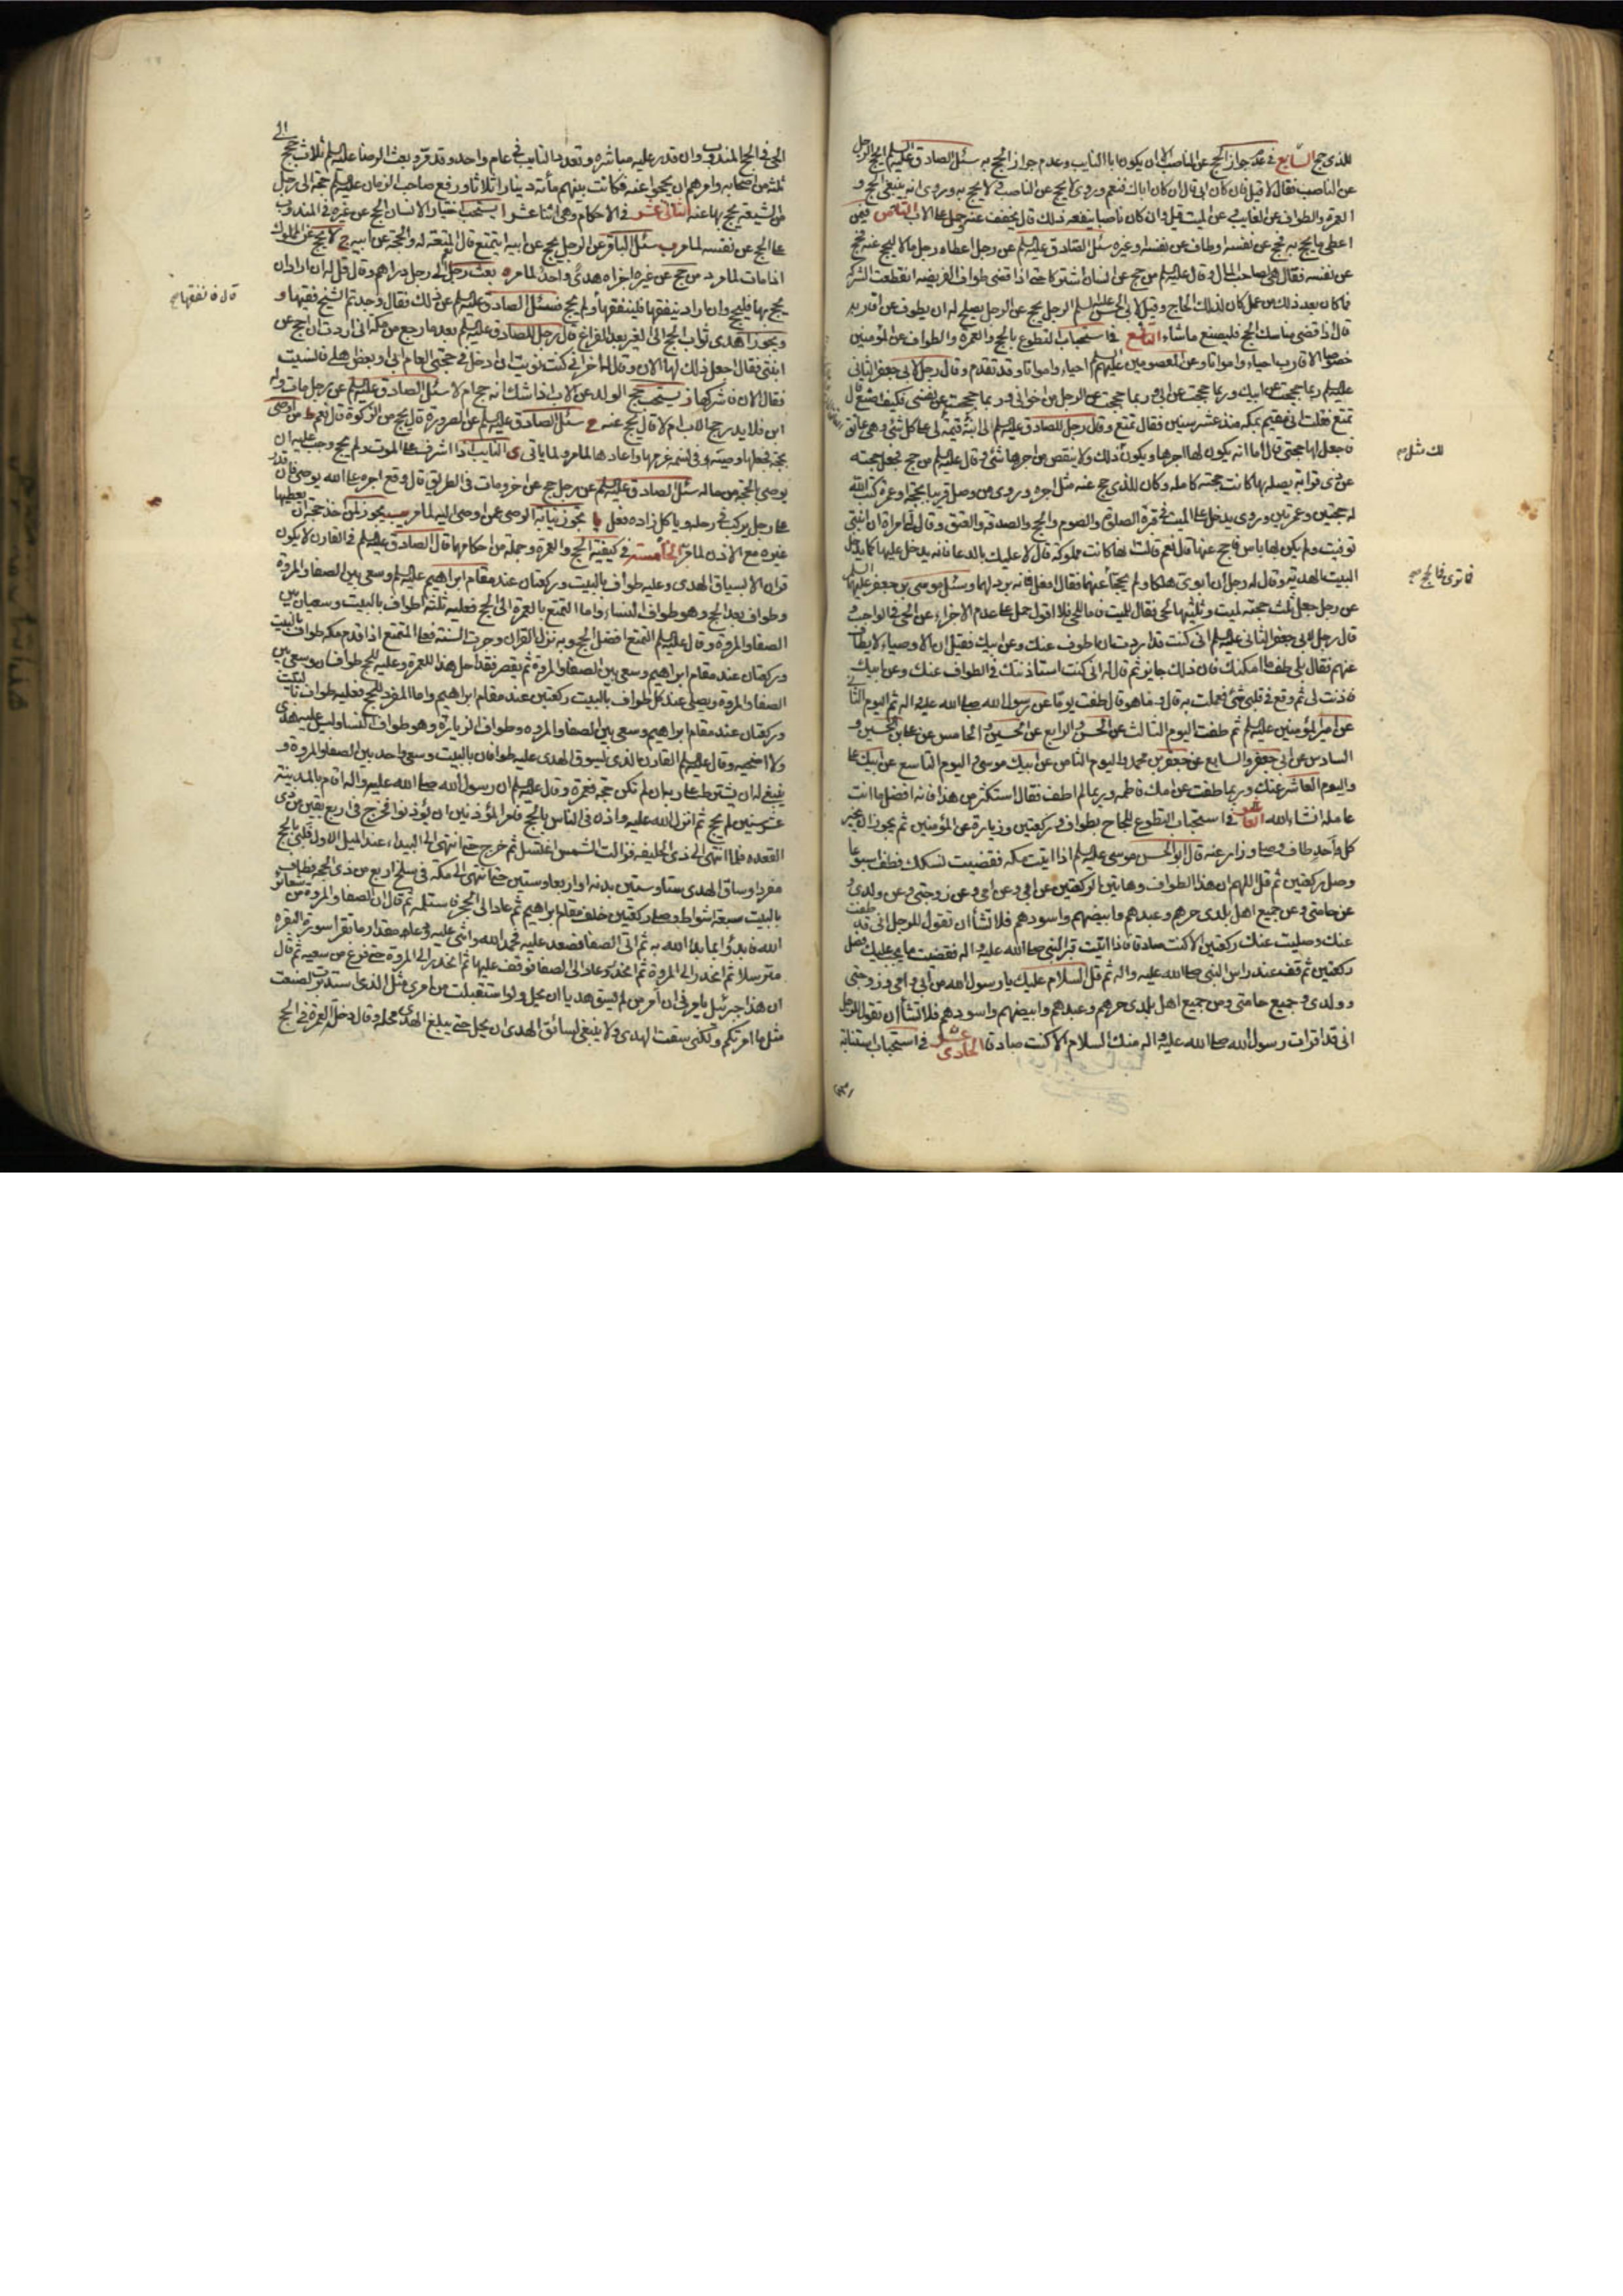 للذى حج السابع فى عدم جواز الحج عن الناصب الا ان يكون ابا النايب وعدم جواز الحج به سئل الصادق عليه السلم ايحج الرجل
عن الناصب فقال لا قيل فان كان ابى قال ان كان اباك فنعم وروى لا يحج عن الناصب ولا يحج به وروى انه ينبغى الحج و
العمرة والطواف عن الغايب عن الميت قيل وان كان ناصبا ينفعه ذلك قال يخفف عنه وحمل على الاب الثامن فيمن
اعطى ما يحج به فحج عن نفسه او طاف عن نفسه او غيره سئل الصادق عليه السلم عن رجل اعطاه رجل مالا ليحج عنه فحج
عن نفسه فقال هى لصاحب المال وقال عليه السلم من حج عن انسان اشتركا حتى اذا قضى طواف الفريضه انقطعت الشركة
فما كان بعد ذلك من عمل كان لذلك الحاج وقيل لابى الحسن عليه السلم الرجل يحج عن الرجل يصلح له ان يطوف عن اقاربه
قال اذا قضى مناسك الحج فليصنع ما شاء التاسع فى استحباب التطوع بالحج والعمرة والطواف عن المؤمنين
خصوصا الاقارب احياء وامواتا وعن المعصومين عليهم السلم احياء وامواتا وقد تقدم وقال رجل لابى جعفر الثانى
عليه السلم ربما حججت عن ابيك وربما حججت عن ابى وربما حججت عن الرجل من اخوانى وربما حججت عن نفسى فكيف اصنع قال
تمتع فقلت انى مقيم بمكة منذ عشر سنين فقال تمتع وقال رجل للصادق عليه السلم ان ابنة قيمة لى على كل شئ وهى عاتق
فاجعل لها حجتى قال اما انه يكون لها اجرها ويكون لك مثل ذلك ولا ينقص من اجرها شئ وقال عليه السلم من حج فجعل حجته
عن ذى قرابة يصله بها كانت حجته كاملة وكان للذى حج عنه مثل اجره وروى من وصل قريبا بحجة او عمرة كتب الله
له حجتين وعمرتين وروى يدخل على الميت فى قبره الصلوة والصوم والحج والصدقة والعتق وقالت امراة ان ابنتى
توفيت ولم يكن لها باس فاحج عنها قال نعم قالت انها كانت مملوكة قال لا عليك بالدعا فانه يدخل عليها كما يدخل
البيت الهدية وقال له رجل ان ابوى هلكا ولم يحجا فاحج عنهما فقال افعل فانه بر لهما وسئل موسى بن جعفر عليهما السلم
عن رجل جعل ثلث حجته لميت وثلثيها لحى فقال للميت فاما الحى فلا اقول حمل على عدم الاجزاء عن الحى فى الواجب و
قال رجل لابى جعفر الثانى عليه السلم انى كنت قد اردت ان اطوف عنك وعن ابيك فقيل ان الاوصياء لا يطاف
عنهم فقال بلى طف ما امكنك فان ذلك جايز ثم قال له انى كنت استاذنتك فى الطواف عنك وعن ابيك
فاذنت لى ثم وقع فى قلبى شئ فعملت به قال وما هو قال طفت يوما عن رسول الله صلى الله عليه واله ثم اليوم الثانى
عن امير المؤمنين عليه السلم ثم طفت اليوم الثالث عن الحسن والرابع عن الحسين والخامس عن على بن الحسين و
السادس عن ابى جعفر والسابع عن جعفر بن محمد واليوم الثامن عن ابيك موسى واليوم التاسع عن ابيك على
واليوم العاشر عنك وربما طفت عن امك فاطمه وربما لم اطف فقال استكثر من هذا فانه افضل ما انت
عامله انشاء الله العاشر فى استحباب التطوع للحاج بطواف وركعتين وزيارة عن المؤمنين ثم يجوز ان يخبر
كل واحد طاف وصلى وزار عنه قال ابو الحسن موسى عليه السلم اذا اتيت مكه فقضيت نسكك فطف اسبوعا
وصل ركعتين ثم قل اللهم ان هذا الطواف وهاتين الركعتين عن ابى وعن امى وعن زوجتى وعن ولدى و
عن حامتى وعن جميع اهل بلدى حرهم وعبدهم وابيضهم واسودهم فلا تشأ ان تقول للرجل انى قد طفت
عنك وصليت عنك ركعتين الا كنت صادقا فاذا اتيت قبر النبى صلى الله عليه واله فقضيت ما يجب عليك فصل
ركعتين ثم قف عند راس النبى صلى الله عليه واله ثم قل السلام عليك يا رسول الله من ابى وامى وزوجتى
وولدى وجميع حامتى ومن جميع اهل بلدى حرهم وعبدهم وابيضهم واسودهم فلا تشأ ان تقول للرجل
انى قد اقرات رسول الله صلى الله عليه واله منك السلام الا كنت صادقا الحادى عشر فى استحباب استنابة
لك مثل
الحى فى الحج المندوب وان قدر عليه مباشرة وتعدد النايب فى عام واحد وقد مر وبعث الرضا عليه السلم ثلاث حجج الى
ثلثة من اصحابه وامرهم ان يحجوا عنه فكانت بينهم مأته دينار اثلاثا ورفع صاحب الزمان عليه السلم حجة الى رجل
من الشيعة يحج بها عنه الثانى عشر فى الاحكام وهى اثنا عشر ا يستحب اختيار الانسان الحج عن غيره فى المندوب
على الحج عن نفسه لما مر ب سئل الباقر عن الرجل يحج عن ابيه ايتمتع قال نعم المتعة له والحجة عن ابيه ج لا يحج عن المملوك
اذا مات لما مر د من حج عن غيره اجزاه هدى واحد لما مر ه بعث رجل الى رجل بدراهم وقال قل له ان اراد ان
يحج بها فليحج وان اراد ينفقها فلينفقها ولم يحج فسئل الصادق عليه السلم عن ذلك فقال وجدتم الشيخ فقيها و
يجوز اهدى ثواب الحج الى الغير بعد الفراغ قال رجل للصادق عليه السلم بعد ما رجع من مكه انى اردت ان احج عن
ابنتى فقال اجعل ذلك لها الان وقال له اخر انى كنت نويت ان ادخل فى حجتى العام ابى او بعض اهلى فانسيت
فقال الان فاشركها ز يستحب حج الولد عن الاب اذا شك انه حج ام لا سئل الصادق عليه السلم عن رجل مات وله
ابن فلا يدر حج الاب ام لا قال يحج عنه ح سئل الصادق عليه السلم عن الصرورة قال يحج من الزكوة قال نعم ط من اوصى
يوصى بالحجة من ماله سئل الصادق عليه السلم عن رجل حج عن اخر ومات فى الطريق قال وقع اجره على الله يوصى فان قدر
على رجل يركب فى رحله وياكل زاده فعل يا يجوز نيابة الوصى عمن اوصى اليه لما مر يب يجوز لمن اخذ حجة ان يعطيها
غيره مع الاذن لما مر الخامسة فى كيفية الحج والعمرة وجملة من احكامها قال الصادق عليه السلم فى القارن لا يكون
قران الا بسياق الهدى وعليه طواف بالبيت وركعتان عند مقام ابراهيم عليه السلم وسعى بين الصفا والمروة
وطواف بعد الحج وهو طواف النساء واما التمتع بالعمرة الى الحج فعليه ثلثة اطواف بالبيت وسعيان بين
الصفا والمروة وقال عليه السلم التمتع افضل الحج وبه نزل القران وجرت السنة فعلى المتمتع اذا قدم مكه طواف بالبيت
وركعتان عند مقام ابراهيم وسعى بين الصفا والمروة ثم يقصر فقد احل هذا للعمرة وعليه للحج طوافان وسعى بين
الصفا والمروة ويصلى عند كل طواف بالبيت ركعتين عند مقام ابراهيم واما المفرد للحج فعليه طواف بالبيت
وركعتان عند مقام ابراهيم وسعى بين الصفا والمروه وطواف الزيارة وهو طواف النساء وليس عليه هدى
ولا اضحيه وقال عليه السلم القارن الذى يسوق الهدى عليه طوافان بالبيت وسعى واحد بين الصفا والمروة و
ينبغى له ان يشترط على ربه ان لم تكن حجة فعمرة وقال عليه السلم ان رسول الله صلى الله عليه واله اقام بالمدينة
عشر سنين لم يحج ثم انزل الله عليه واذن فى الناس بالحج فامر المؤذنين ان يؤذنوا فخرج فى اربع بقين من ذى
القعده فلما انتهى الى ذى الحليفه فزالت الشمس اغتسل ثم خرج حتى انتهى الى البيداء عند الميل الاول فلبى بالحج
مفردا وساق الهدى ستا وستين بدنه او اربعا وستين حتى انتهى الى مكه فى سلخ اربع من ذى الحجه فطاف
بالبيت سبعة اشواط وصلى ركعتين خلف مقام ابراهيم ثم عاد الى الحجر فاستلمه ثم قال ان الصفا والمروه من شعائر
الله فابدؤا بما بدا الله به ثم اتى الصفا فصعد عليه فحمد الله واثنى عليه ودعا مقدار ما تقرا سورة البقره
مترسلا ثم انحدر الى المروة ثم انحدر وعاد الى الصفا فوقف عليها ثم انحدر الى المروة حتى فرغ من سعيه ثم قال
ان هذا جبرئيل يامرنى ان آمر من لم يسق هديا ان يحل ولو استقبلت من امرى مثل الذى استدبرت لصنعت
مثل ما امرتكم ولكنى سقت الهدى ولا ينبغى لسائق الهدى ان يحل حتى يبلغ الهدى محله وقال دخلت العمرة فى الحج
قال فانفقها